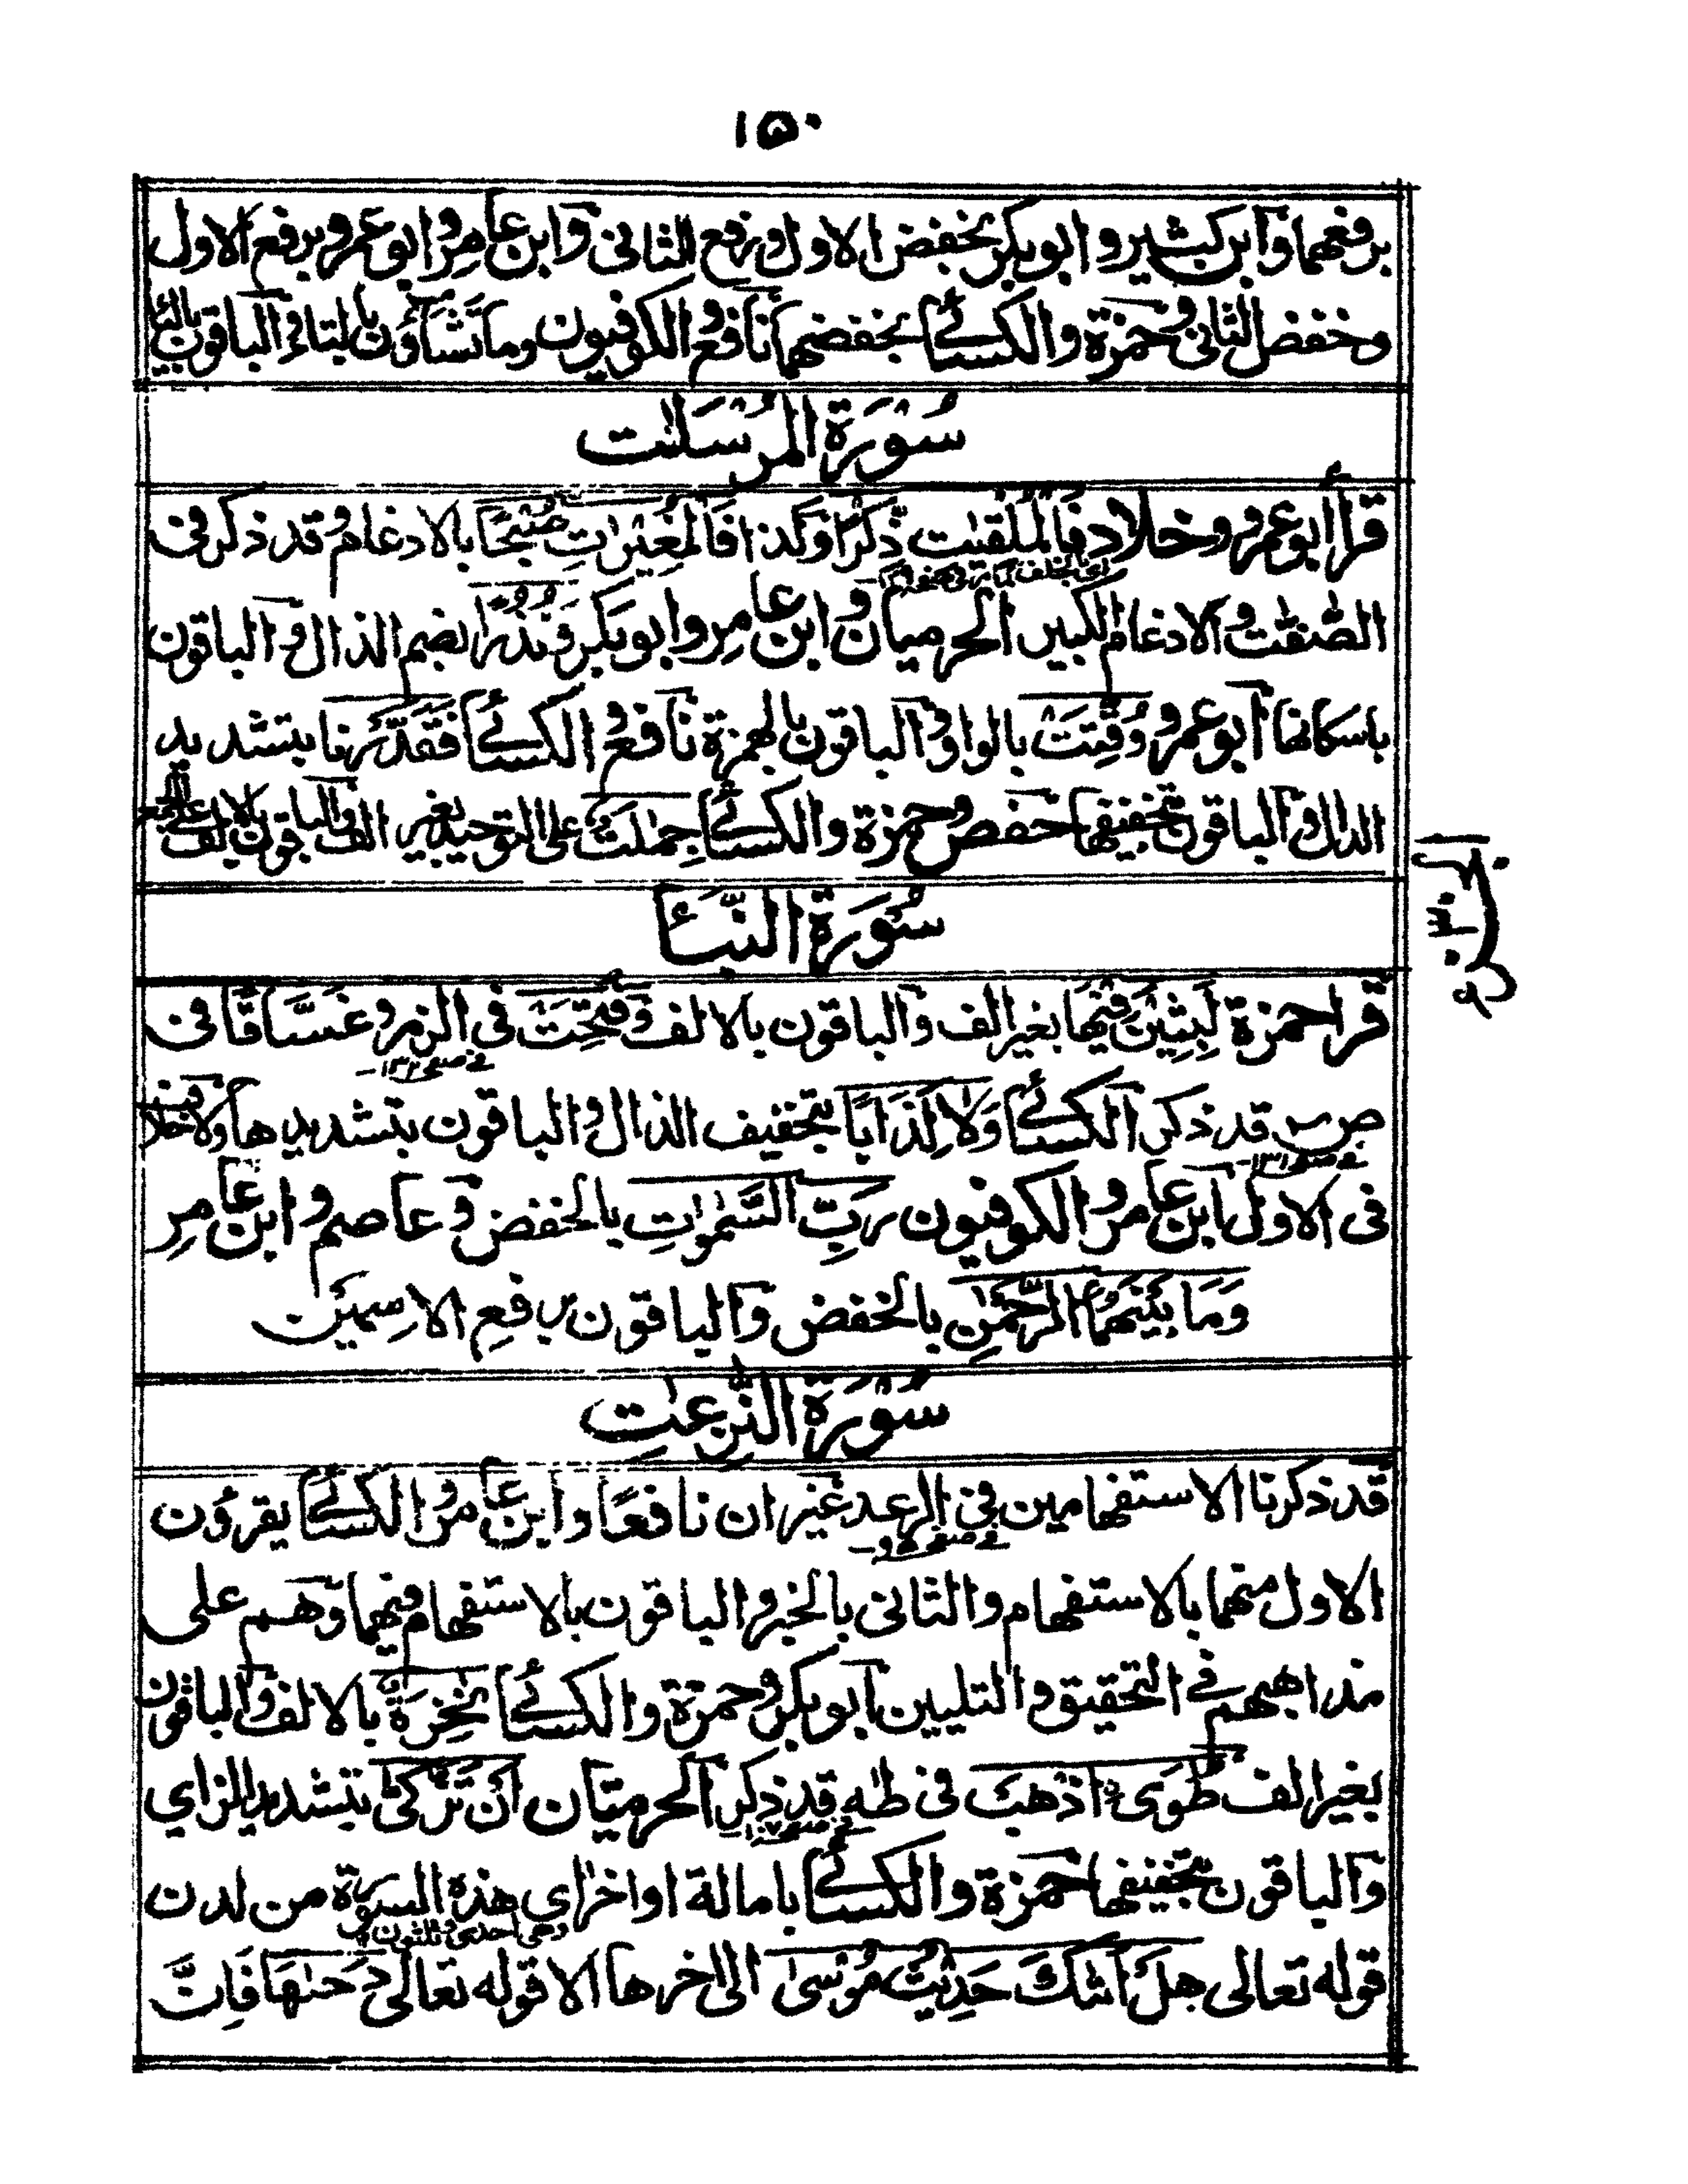 ١٥٠
برفعهما وابن كثير وابوبكر بخفض الاول ورفع الثانى وابن عامر وابوعمرو برفع الاول
وخفض الثانى وحمزة والكسائى بخفضهما نافع والكوفيون وما تشاؤن بالتاء والباقون بالياء
سُورَة المرسلٰت
قرأ ابوعمرو وخلاد فالملقيٰت ذِّكرًا وكذا فالمغيرٰتِ صُّبْحًا بالادغام وقد ذكر فى
الصّٰفّٰت والادغام الكبير الحرميان وابن عامر وابوبكر ونُذُرًا بضم الذال والباقون
باسكانها ابوعمرو وُقِّتَتْ بالواو والباقون بالهمزة نافع والكسائى فَقَدَّرْنا بتشديد
الدال والباقون بتخفيفها حفص وحمزة والكسائى جِمٰلَتٌ على التوحيد بغير الف والباقون بالالف على الجمع
سُورَة النَّبَأ
قرأ حمزة لَبِثِيْنَ فيها بغير الف والباقون بالالف وفُتِحَتْ فى الزمر وغَسَّاقًا فى
فى صفحه ١٣٢
ص قد ذكر الكسائى وَلَا كِذَابًا بتخفيف الذال والباقون بتشديدها ولا خلاف
فى صفحه ١٣١
فى الاول ابن عامر والكوفيون رَبِّ السَّمٰوٰتِ بالخفض وعاصم وابن عامر
وَمَا بَيْنَهُمَا الرَّحْمٰنِ بالخفض والباقون برفع الاسمين
سُوْرَة النّٰزِعٰتِ
قد ذكرنا الاستفهامين فى الرعد غير ان نافعًا وابن عامر والكسائى يقرؤن
الاول منهما بالاستفهام والثانى بالخبر والباقون بالاستفهام فيهما وهم على
مذاهبهم فى التحقيق والتليين ابوبكر وحمزة والكسائى نٰخِرَةً بالالف والباقون
بغير الف طُوًى اذْهَبْ فى طه قد ذكر الحرميّان اَنْ تَزَّكّٰى بتشديد الزاي
والباقون بتخفيفها حمزة والكسائى بامالة اواخر اى هذه السورة من لدن
وهى احدى وثلثون
قوله تعالى هَلْ اَتٰىكَ حَدِيْثُ مُوْسٰى الى اخرها الا قوله تعالى دَحٰىهَا فَاِنَّ